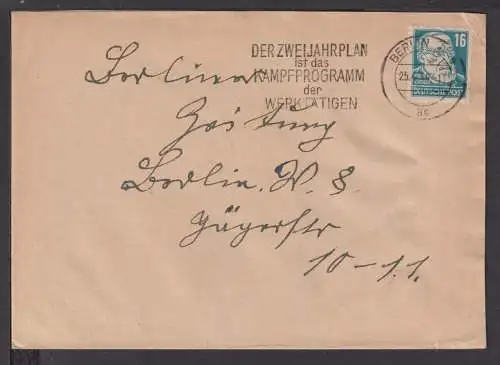 DER ZWEIJAHRPLAN
ist das
KAMPFPROGRAMM
der
WERKTÄTIGEN
BERLIN
25.
16
DEUTSCHE POST
Berliner
Zeitung
Berlin. W. 8
Jägerstr
10-11.